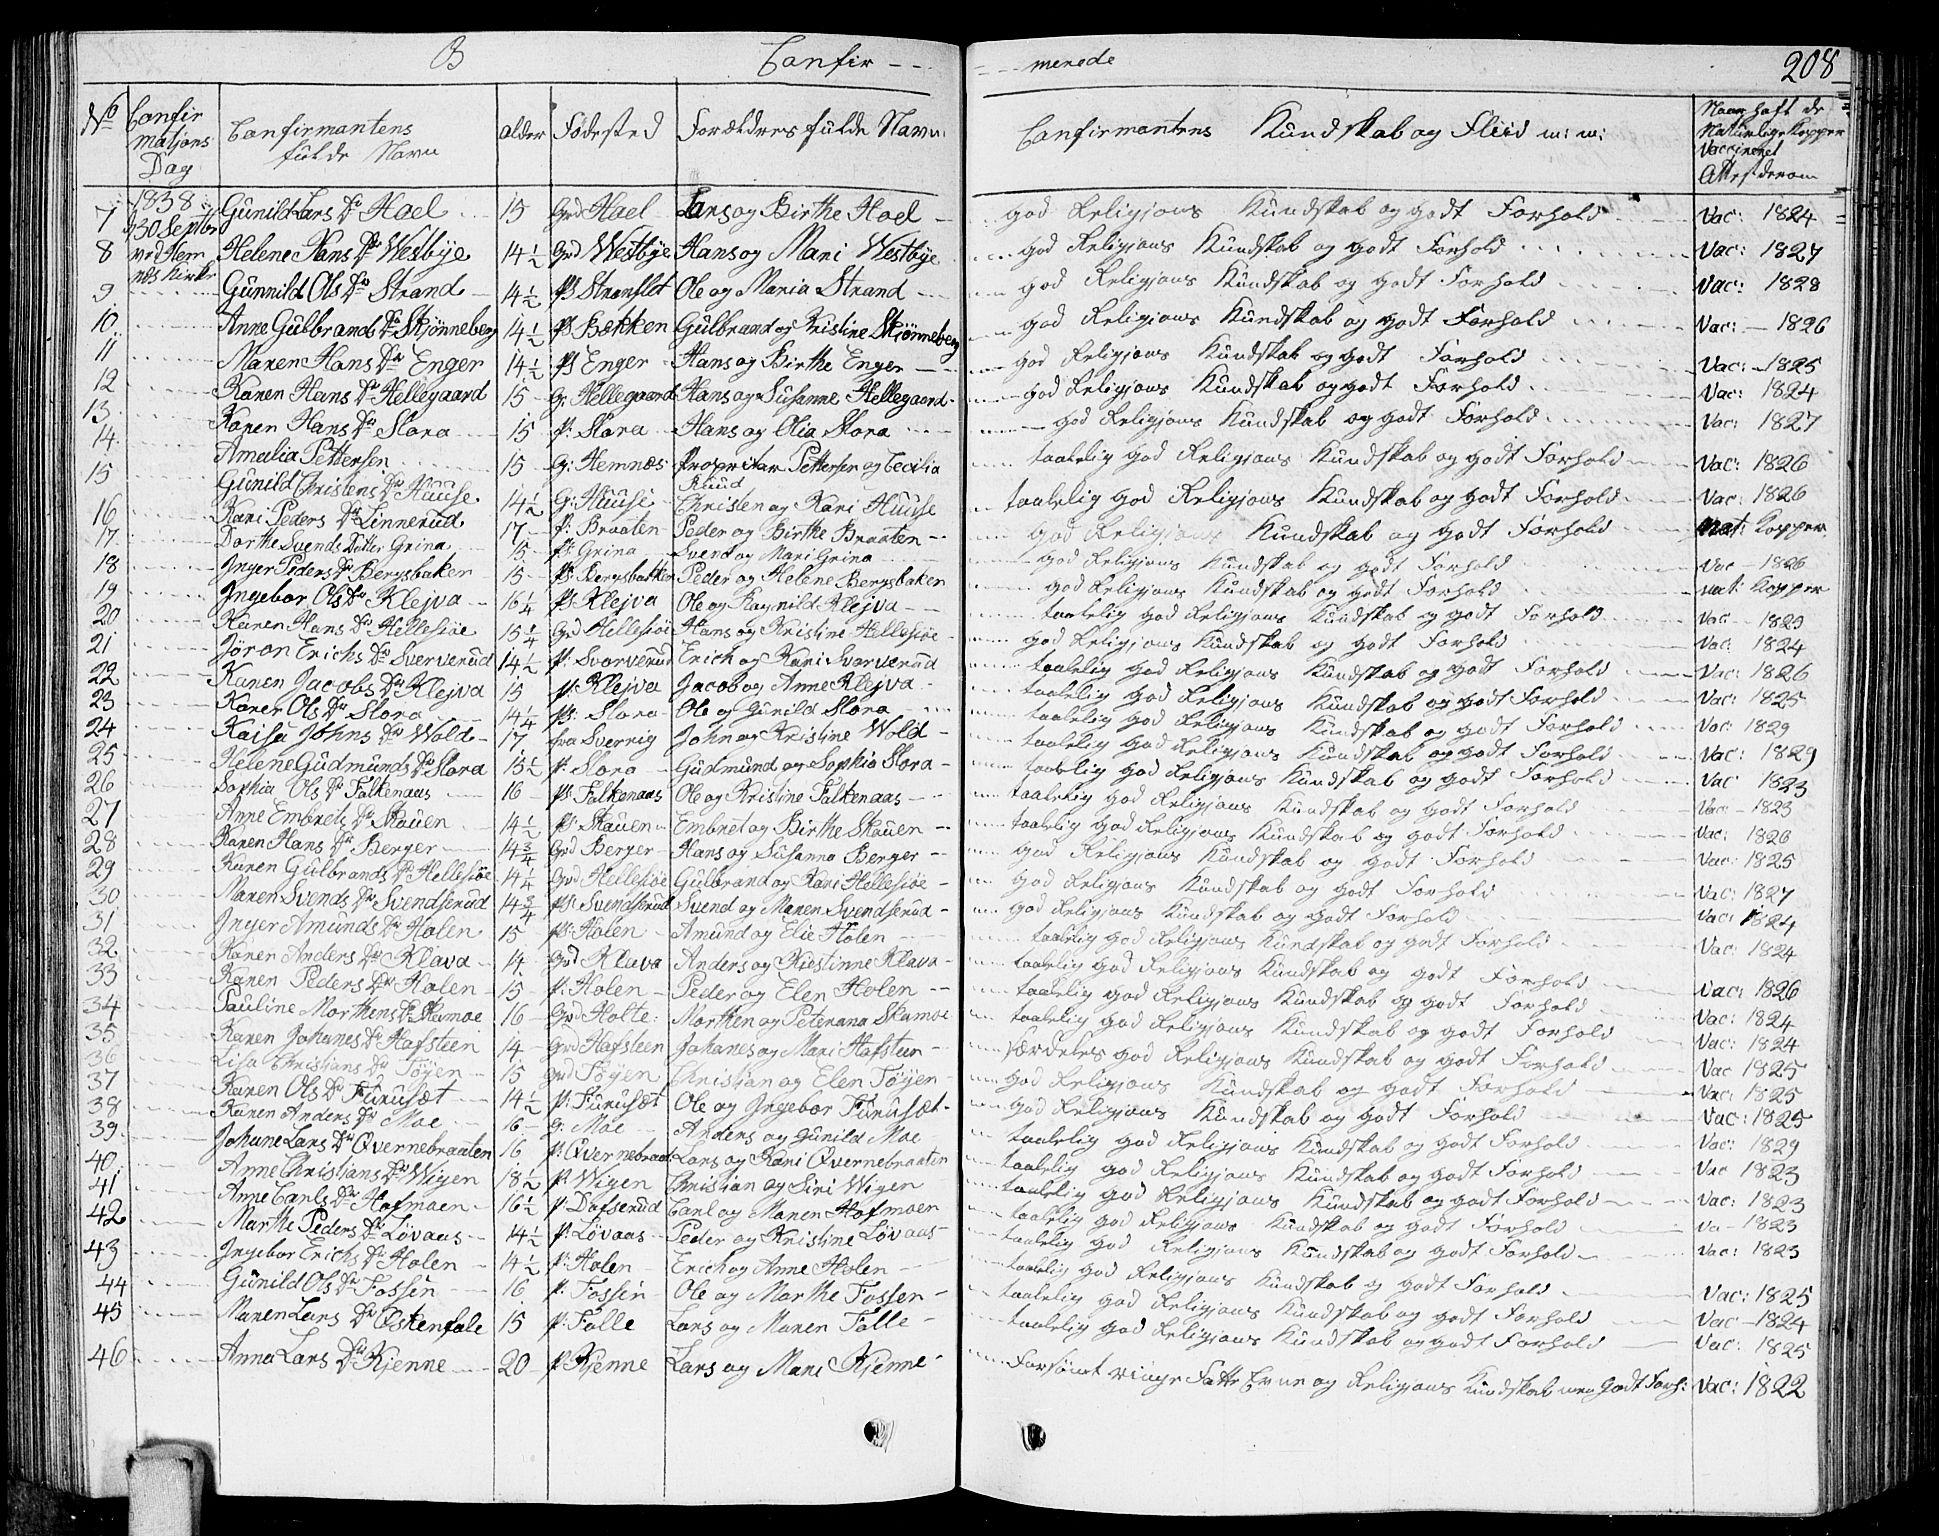 B Confir - - - - - - merede 208
No Confir matjons Dag Confirmantens fulde Navn alder Fødested Forældres fulde Navn: Confirmantens Kundskab og Fliid m: m: Naar haft de Naturlige Kopper Vaccineret Attest derom
1838
7 d 30 Septbr Gunild Lars Dr Hoel 15 Grd Hoel Lars og Birthe Hoel god Religjons Kundskab og godt Forhold Vac: 1824
8 ved Hem Helene Hans Dr Westbye 14 1/2 Grd Westbye Hans og Mari Westbye god Religjons Kundskab og godt Forhold Vac: 1827
9 næs Kirke Gunnild Ols Dr Strand 14 1/2 Ps Stranslet Ole og Maria Strand god Religjons Kundskab og godt Forhold Vac: 1828
10 Anne Gulbrands Dr Skjønneberg 14 1/2 Ps Bækken Gulbrand og Kristine Skjønneberg god Religjons Kundskab og godt Forhold Vac: 1826
11 Maren Hans Dr Enger 14 1/2 Ps Enger Hans og Birthe Enger god Religjons Kundskab og godt Forhold Vac: 1825
12 Karen Hans Dr Hellegaard 15 Gr Hellegaard Hans og Susanne Hellegaard god Religjons Kundskab og godt Forhold Vac: 1824
13 Karen Hans Dr Slora 15 P: Slora Hans og Olia Slora god Religjons Kundskab og godt Forhold Vac: 1827
14 Amalia Pettersen 15 G: Hemnæs Propritær Pettersen og Cecilia Ruud taalelig god Religjons Kundskab og godt Forhold Vac: 1826
15 Gunild Christens Dr Huuse 14 1/2 G: Huuse Christen og Kari Huuse taalelig god Religjons Kundskab og godt Forhold Vac: 1826
16 Kari Peders Dr Linnerud 17 P: Braaten Peder og Birthe Braaten god Religjons Kundskab og godt Forhold nat: Kopper
17 Dorthe Svends Datter Grina 15 Ps Grina Svend og Mari Grina god Religjons Kundskab og godt Forhold Vac 1826
18 Inger Peders Dr Bergsbaken 15 Ps Bergsbakken Peder og Helene Bergsbaken god Religjons Kundskab og godt Forhold nat: Kopper
19 Ingebor Ols Dr Klejva 16 1/4 Ps Klejva Ole og Ragnild Klejva taalelig god Religjons Kundskab og godt Forhold Vac 1823
20 Karen Hans Dr Hellesiøe 15 1/4 Grd Hellesiøe Hans og Kristine Hellesiøe god Religjons Kundskab og godt Forhold Vac: 1824
21 Jøran Erichs Dr Sververud 14 1/2 P: Svarverud Erich og Kari Svarverud taalelig god Religjons Kundskab og godt Forhold Vac: 1826
22 Karen Jacobs Dr Klejva 15 P: Klejva Jacob og Anne Klejva taalelig god Religjons Kundskab og godt Forhold Vac: 1825
23 Karen Ols Dr Slora 14 1/4 Ps: Slora Ole og Gunild Slora taalelig god Religjons Kundskab og godt Forhold Vac: 1829
24 Kaisa Johns Dr Wold 17 fra Sverrig John og Kristine Wold taalelig god Religjons Kundskab og godt Forhold Vac: 1829
25 Helene Gudmunds Dr Slora 15 1/2 P: Slora Gudmund og Sophia Slora taalelig god Religjons Kundskab og godt Forhold Vac 1823
26 Sophia Ols Dr Falkenaas 16 Ps Falkenaas Ole og Kristine Falkenaas taalelig god Religjons Kundskab og godt Forhold Vac 1823
27 Anne Embrets Dr Skauen 14 1/2 Ps: Skauen Embret og Birthe Skauen taalelig god Religjons Kundskab og godt Forhold Vac: 1826
28 Karen Hans Dr Berger 14 3/4 Grd Berger Hans og Susanna Berger god Religjons Kundskab og godt Forhold Vac: 1825
29 Karen Gulbrands Dr Hellesiøe 14 1/4 Grd Hellesiøe Gulbrand og Kari Hellesiøe god Religjons Kundskab og godt Forhold Vac: 1827
30 Maren Svends Dr Svendserud 14 3/4 Ps: Svendserud Svend og Maren Svendserud god Religjons Kundskab og godt Forhold Vac: 1824
31 Inger Amunds Dr Holen 15 Ps: Holen Amund og Elie Holen taalelig god Religjons Kundskab og godt Forhold Vac: 1824
32 Karen Anders Dr Klava 14 Grd Klava Anders og Kiestinne Klava taalelig god Religjons Kundskab og godt Forhold Vac: 1826
33 Karen Peders Dr Holen 15 P: Holen Peder og Elen Holen taalelig god Religjons Kundskab og godt Forhold Vac: 1824
34 Pauline Morthens Dr Skamoe 16 Grd Holte: Morthen og Peterana Skamoe taalelig god Religjons Kundskab og godt Forhold Vac: 1824
35 Karen Johanes Dr Hafsteen 14 Grd Hafsteen Johanes og Mari Hafsteen særdeles god Religjons Kundskab og godt Forhold Vac 1825
36 Lisa Christians Dr Tøyen 15 Grd Tøyen Christian og Elen Tøyen god Religjons Kundskab og godt Forhold Vac: 1825
37 Karen Ols Dr Furusæt 14 1/2 P: Furusæt Ole og Ingebor Furusæt god Religjons Kundskab og godt Forhold Vac: 1825
38 Karen Anders Dr Moe 16 G: Moe Anders og Gunild Moe taalelig god Religjons Kundskab og godt Forhold Vac: 1829
39 Johane Lars Dr Qvernebraaten 16 P: Qvernebraat Lars og Kari Qvernebraaten taalelig god Religjons Kundskab og godt Forhold Vac 1823
40 Anne Christians Dr Wigen 18 1/2 P: Wigen Christian og Siri Wigen taalelig god Religjons Kundskab og godt Forhold Vac: 1823
41 Anne Carls Dr Hofmoen 16 1/2 P: Dafserud Carl og Maren Hofmoen taalelig god Religjons Kundskab og godt Forhold Va 1823
42 Marthe Peders Dr Løvaas 14 1/2 P: Løvaas Peder og Kristine Løvaas taalelig god Religjons Kundskab og godt Forhold Vac: 1823
43 Ingebor Erichs Dr Holen 14 1/2 P: Holen Erich og Anne Holen taalelig god Religjons Kundskab og godt Forhold Vac: 1825
44 Gunild Ols Dr Fossen 16 P: Fossen Ole og Marthe Fossen taalelig god Religjons Kundskab og godt Forhold Vac 1824
45 Maren Lars Dr Østenfale 15 P: Falle Lars og Maren Falle taalelig god Religjons Kundskab og godt Forhold Vac: 1825
46 Anna Lars Dr Kjenne 20 P Kjenne Lars og Mari Kjenne Forsømt ringe Fatte Evne og Religjons Kundskab men Godt Forh: Vac: 1822